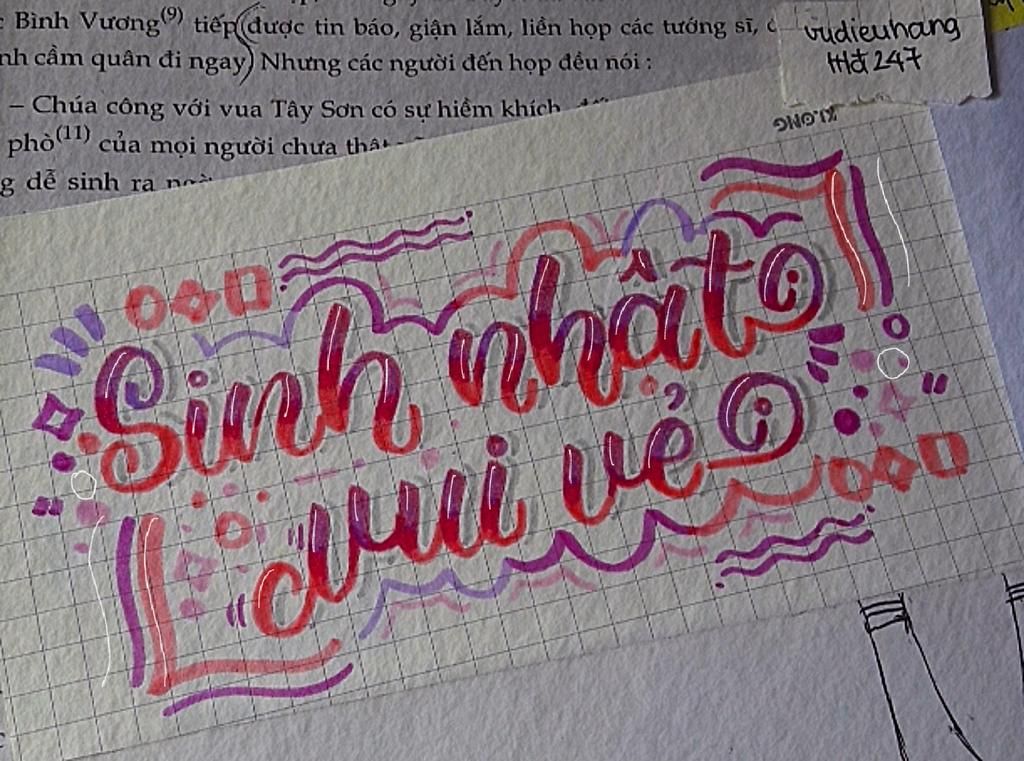 Bình Vương(9) tiếp (được tin báo, giận lắm, liền họp các tướng sĩ,
cầm quân đi ngay) Nhưng các người đến họp đều nói :
– Chúa công với vua Tây Sơn có sự hiềm khích,
phò(11) của mọi người chưa
dễ sinh ra
vudieuhang
Hđ 247
KLONG
Sinh nhật
vui vẻ